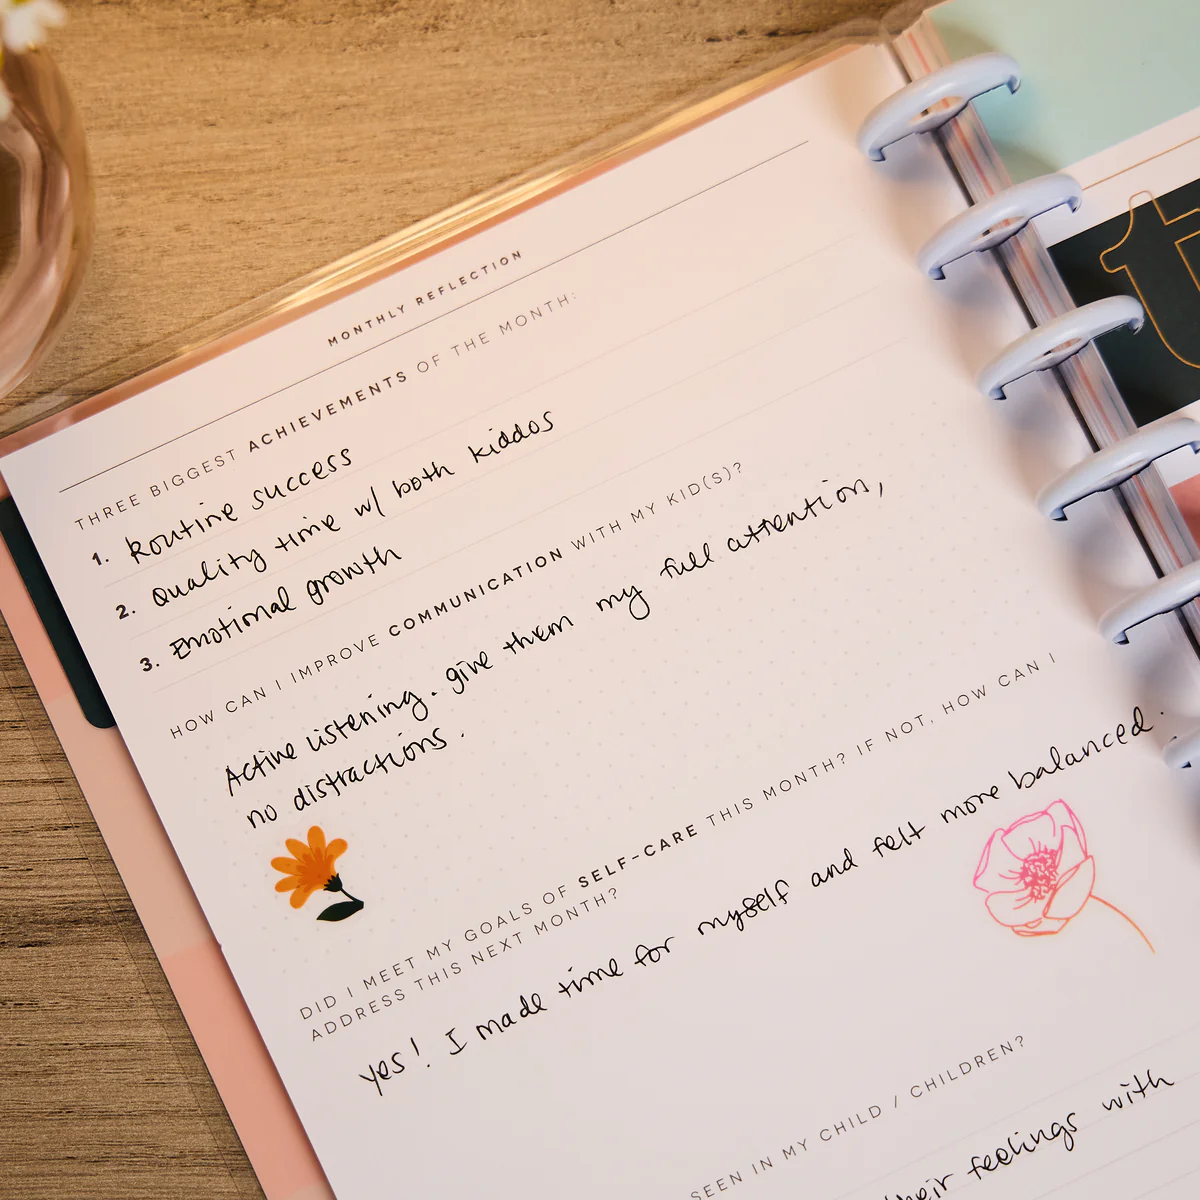 MONTHLY REFLECTION
THREE BIGGEST ACHIEVEMENTS OF THE MONTH:
1. Routine success
2. Quality time w/ both kiddos
3. Emotional growth
HOW CAN I IMPROVE COMMUNICATION WITH MY KID(S)?
Active listening. give them my full attention,
no distractions.
DID I MEET MY GOALS OF SELF-CARE THIS MONTH? IF NOT, HOW CAN I
ADDRESS THIS NEXT MONTH?
yes! I made time for myself and felt more balanced.
SEEN IN MY CHILD / CHILDREN?
their feelings with
t